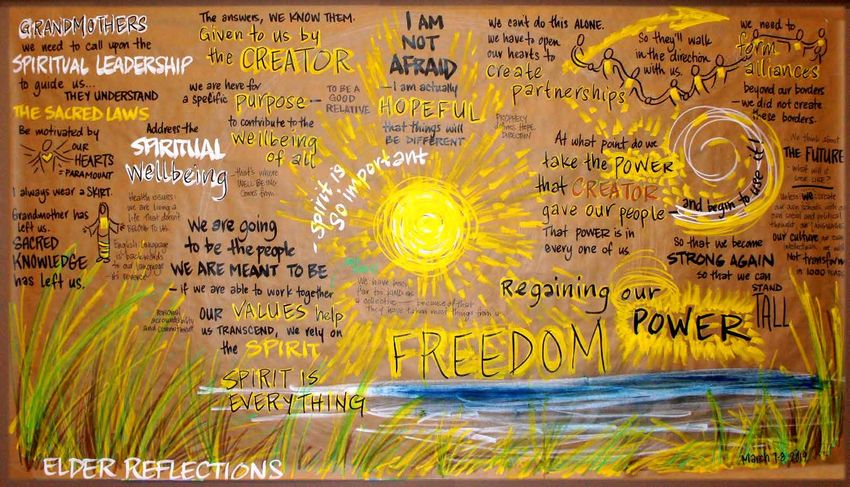 GRANDMOTHERS
we need to call upon the
SPIRITUAL LEADERSHIP
to guide us...
THEY UNDERSTAND
THE SACRED LAWS
Be motivated by
OUR
HEARTS
= PARAMOUNT
I always wear a SKIRT.
Grandmother has
left us.
SACRED
KNOWLEDGE
has left us.
Address the
SPIRITUAL
Wellbeing
that's where
WELL BEING
comes from
Health issues:
we are living a
life that doesn't
BELONG TO US.
English language
is backwards
to our language
its reverse
The answers, WE KNOW THEM.
Given to us by
the CREATOR
we are here for
a specific PURPOSE
TO BE A
GOOD
RELATIVE
to contribute to the
wellbeing
of all
we are going
to be the people
WE ARE MEANT TO BE
– if we are able to work together
OUR VALUES help
us TRANSCEND, we rely on
the SPIRIT
SPIRIT IS
EVERYTHING
accountability
and commitment
I AM
NOT
AFRAID
– I am actually
HOPEFUL
that things will
BE DIFFERENT
– Spirit is
so important
we can't do this ALONE.
we have to open
our hearts to
create
partnerships
PROPHECY
HOPE
DIRECTION
So they'll walk
in the direction
with us.
we need to
form
alliances
beyond our borders
– we did not create
these borders.
At what point do we
take the POWER
that CREATOR
gave our people
– and begin to use it!
That POWER is in
every one of us
So that we become
STRONG AGAIN
so that we can
STAND
TALL
We think about
THE FUTURE
– what will it
LOOK LIKE?
Unless WE create
our own schools, with our
own social and political
our culture
Not transform
in 1000 YEARS
We have been
a collective – because of that
they have taken most things from us
Regaining our
POWER
FREEDOM
ELDER REFLECTIONS
March 7-8, 2019